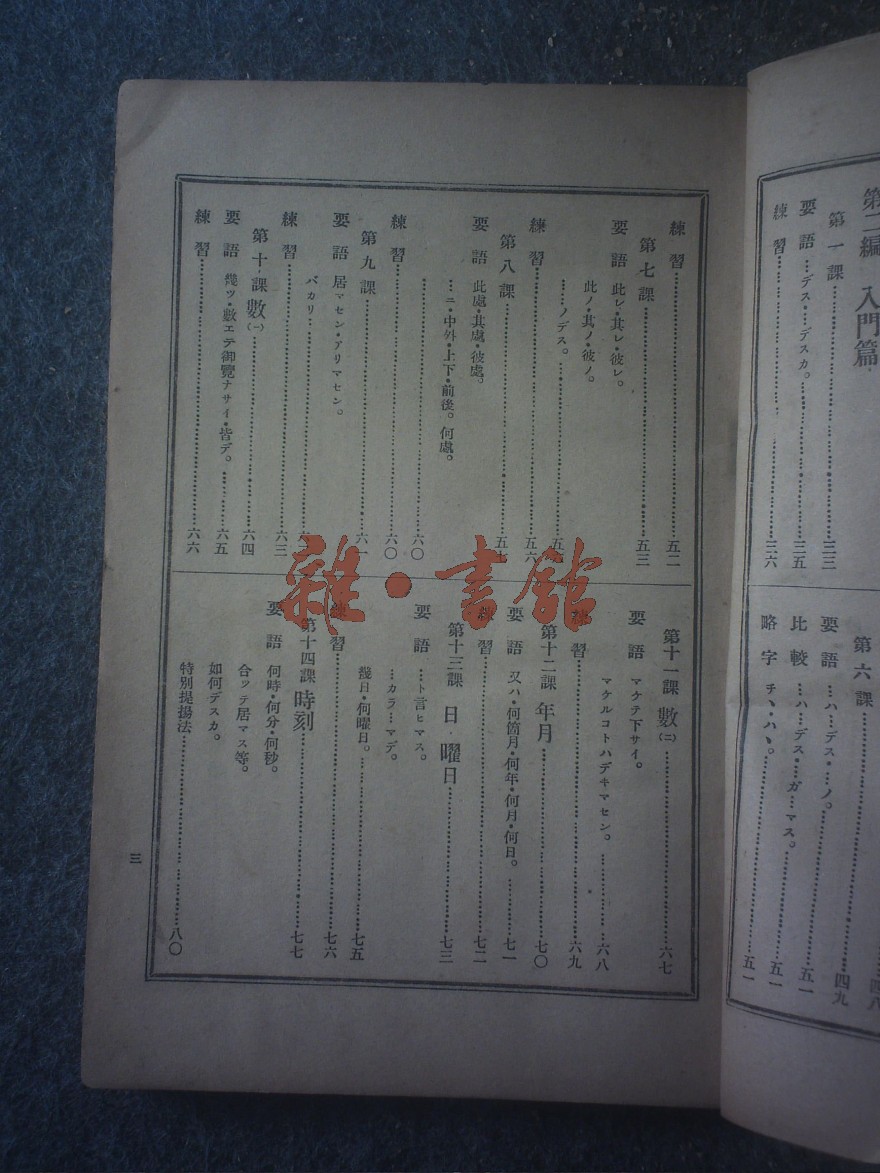 第二編 入門篇
第一課……三三
要語 デス・…デスカ。……三五
練習……三六
第六課……四八
要語 …ハ…デス・……ノ。……四九
比較 …ハ…デス・……ガ…マス。……五一
略字 チヽ・ハヽ。……五一
……五一
練習……五二
第七課……五三
要語 此レ・其レ・彼レ。
此ノ・其ノ・彼ノ。
……ノデス。……五
練習……五六
第八課……五
要語 此處・其處・彼處。
…ニ・中外・上下・前後。何處。
……六〇
練習……六〇
第九課……六一
要語 居マセン・アリマセン。
バカリ……六
練習……六三
第十課 數(一)……六四
要語 幾ツ・數エテ御覽ナサイ・皆デ。……六五
練習……六六
第十一課 數(二)……六七
要語 マケテ下サイ。
マケルコトハデキマセン。……六八
練習……六九
第十二課 年月……七〇
要語 又ハ・何箇月・何年・何月・何日。……七一
練習……七二
第十三課 日・曜日……七三
要語 …ト言ヒマス。
…カラ…マデ。
幾日・何曜日。……七五
練習……七六
第十四課 時刻……七七
要語 何時・何分・何秒。
合ッテ居マス等。
如何デスカ。
特別提揚法……八〇
三
雜·書館